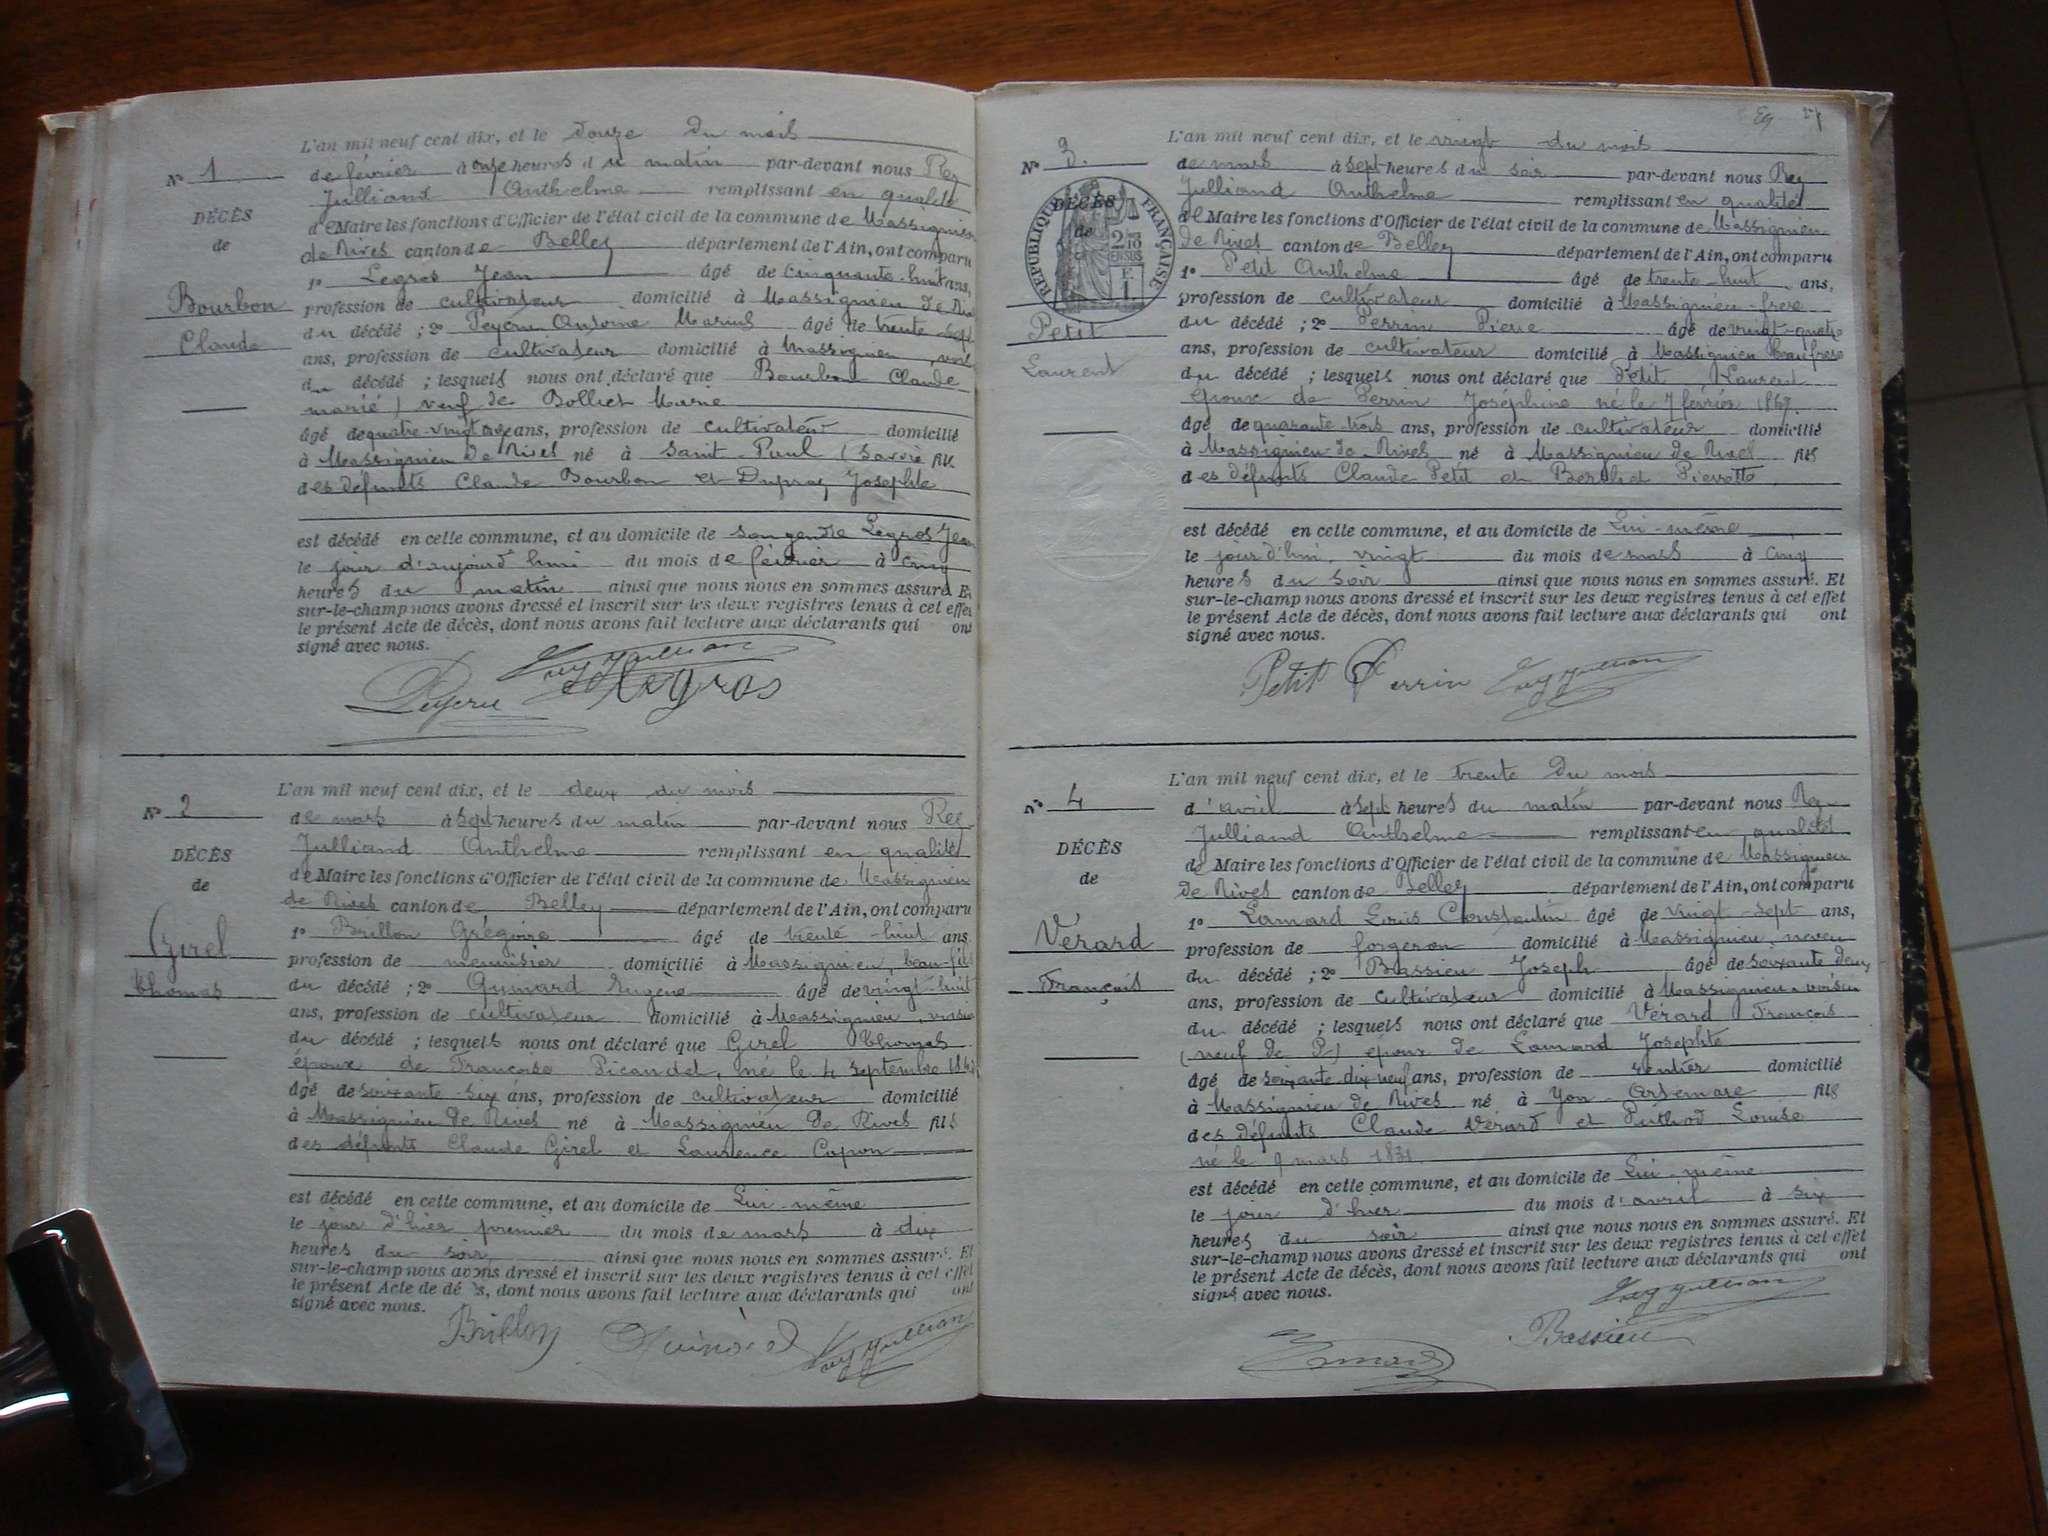 L'an mil neuf cent dix, et le douze du mois
N° 1 de février à onze heures du matin par-devant nous Rey
Julliand Anthelme remplissant en qualité
DÉCÈS
de Maire les fonctions d'Officier de l'état civil de la commune de Massignieu
de
de Rives canton de Belley département de l'Ain, ont comparu
1° Legros Jean âgé de cinquante-huit ans,
Bourbon
profession de cultivateur domicilié à Massignieu de
Claude
du décédé ; 2° Peyeru Antoine Marius âgé de trente-sept
ans, profession de cultivateur domicilié à Massignieu,
du décédé ; lesquels nous ont déclaré que Bourbon Claude
marié) veuf de Bolliet Marie
âgé de quatre-vingt ans, profession de cultivateur domicilié
à Massignieu de Rives né à Saint-Paul (Savoie fils
des défunts Claude Bourbon et Dupraz Josephte
est décédé en cette commune, et au domicile de son gendre Legros Jean
le jour d'aujourd'hui du mois de février à cinq
heures du matin ainsi que nous nous en sommes assuré Et
sur-le-champ nous avons dressé et inscrit sur les deux registres tenus à cet effet
le présent Acte de décès, dont nous avons fait lecture aux déclarants qui ont
signé avec nous.
Rey Jullian
Peyeru Legros
L'an mil neuf cent dix, et le deux du mois
N° 2 de mars à sept heures du matin par-devant nous Rey
Julliand Anthelme remplissant en qualité
DÉCÈS
de Maire les fonctions d'Officier de l'état civil de la commune de Massignieu
de
de Rives canton de Belley département de l'Ain, ont comparu
1° Brillon Grégoire âgé de trente-huit ans
Girel
profession de menuisier domicilié à Massignieu, beau-fils
Thomas
du décédé ; 2° Guinard Eugène âgé de vingt-huit
ans, profession de cultivateur domicilié à Massignieu, voisin
du décédé ; lesquels nous ont déclaré que Girel Thomas
époux de Françoise Picandet, né le 4 septembre
âgé de soixante-six ans, profession de cultivateur domicilié
à Massignieu de Rives né à Massignieu de Rives fils
des défunts Claude Girel et Laurence Capon
est décédé en cette commune, et au domicile de Lui-même
le jour d'hier premier du mois de mars à dix
heures du soir ainsi que nous nous en sommes assuré. Et
sur-le-champ nous avons dressé et inscrit sur les deux registres tenus à cet effet
le présent Acte de décès, dont nous avons fait lecture aux déclarants qui ont
signé avec nous.
Brillon Guinard Rey Jullian
27
L'an mil neuf cent dix, et le vingt du mois
N° 3. de mars à sept heures du soir par-devant nous Rey
Julliand Anthelme remplissant en qualité
DÉCÈS
de
RÉPUBLIQUE FRANÇAISE
2/10 EN SUS
1 F.
de Maire les fonctions d'Officier de l'état civil de la commune de Massignieu
de Rives canton de Belley département de l'Ain, ont comparu
1° Petit Anthelme âgé de trente-huit ans,
profession de cultivateur domicilié à Massignieu frere
Petit
du décédé ; 2° Perrin Pierre âgé de vingt-quatre
Laurent
ans, profession de cultivateur domicilié à Massignieu beaufrere
du décédé ; lesquels nous ont déclaré que Petit Laurent
époux de Perrin Joséphine né le 7 février 1867.
âgé de quarante-trois ans, profession de cultivateur domicilié
à Massignieu de Rives né à Massignieu de Rives fils
des défunts Claude Petit et Berthet Pierrette
est décédé en cette commune, et au domicile de Lui-même
le jour d'hui, vingt du mois de mars à cinq
heures du soir ainsi que nous nous en sommes assuré. Et
sur-le-champ nous avons dressé et inscrit sur les deux registres tenus à cet effet
le présent Acte de décès, dont nous avons fait lecture aux déclarants qui ont
signé avec nous.
Petit Perrin Rey Jullian
L'an mil neuf cent dix, et le trente du mois
N° 4 d'avril à sept heures du matin par-devant nous Rey
Julliand Anthelme remplissant en qualité
DÉCÈS
de Maire les fonctions d'Officier de l'état civil de la commune de Massignieu
de
de Rives canton de Belley département de l'Ain, ont comparu
1° Lamard Louis Constantin âgé de vingt-sept ans,
Vérard
profession de forgeron domicilié à Massignieu, neveu
François
du décédé ; 2° Bassieu Joseph âgé de soixante deux
ans, profession de cultivateur domicilié à Massignieu, voisin
du décédé ; lesquels nous ont déclaré que Vérard François
(veuf de P) époux de Lamard Josephte
âgé de soixante-dix-neuf ans, profession de rentier domicilié
à Massignieu de Rives né à Yon-Artemare fils
des défunts Claude Vérard et Puthod Louise
né le 9 mars 1831
est décédé en cette commune, et au domicile de Lui-même
le jour d'hier du mois d'avril à six
heures du soir ainsi que nous nous en sommes assuré. Et
sur-le-champ nous avons dressé et inscrit sur les deux registres tenus à cet effet
le présent Acte de décès, dont nous avons fait lecture aux déclarants qui ont
signé avec nous.
Rey Jullian
Lamard Bassieu